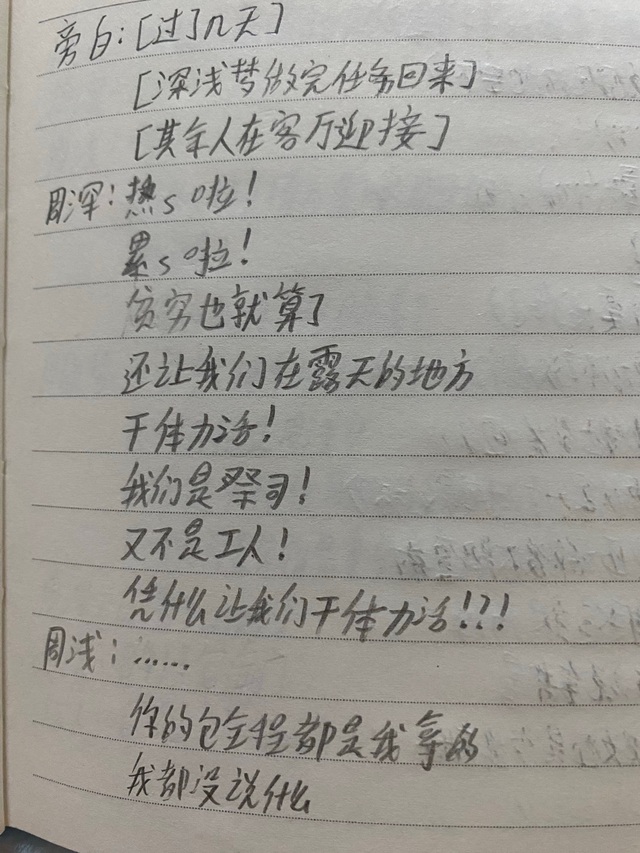 旁白：[过了几天]
[深浅梦做完任务回来]
[其余人在客厅迎接]
周深：热s啦！
累s啦！
贫穷也就算了
还让我们在露天的地方
干体力活！
我们是祭司！
又不是工人！
凭什么让我们干体力活！？！
周浅：……
你的包全程都是我拿的
我都没说什么